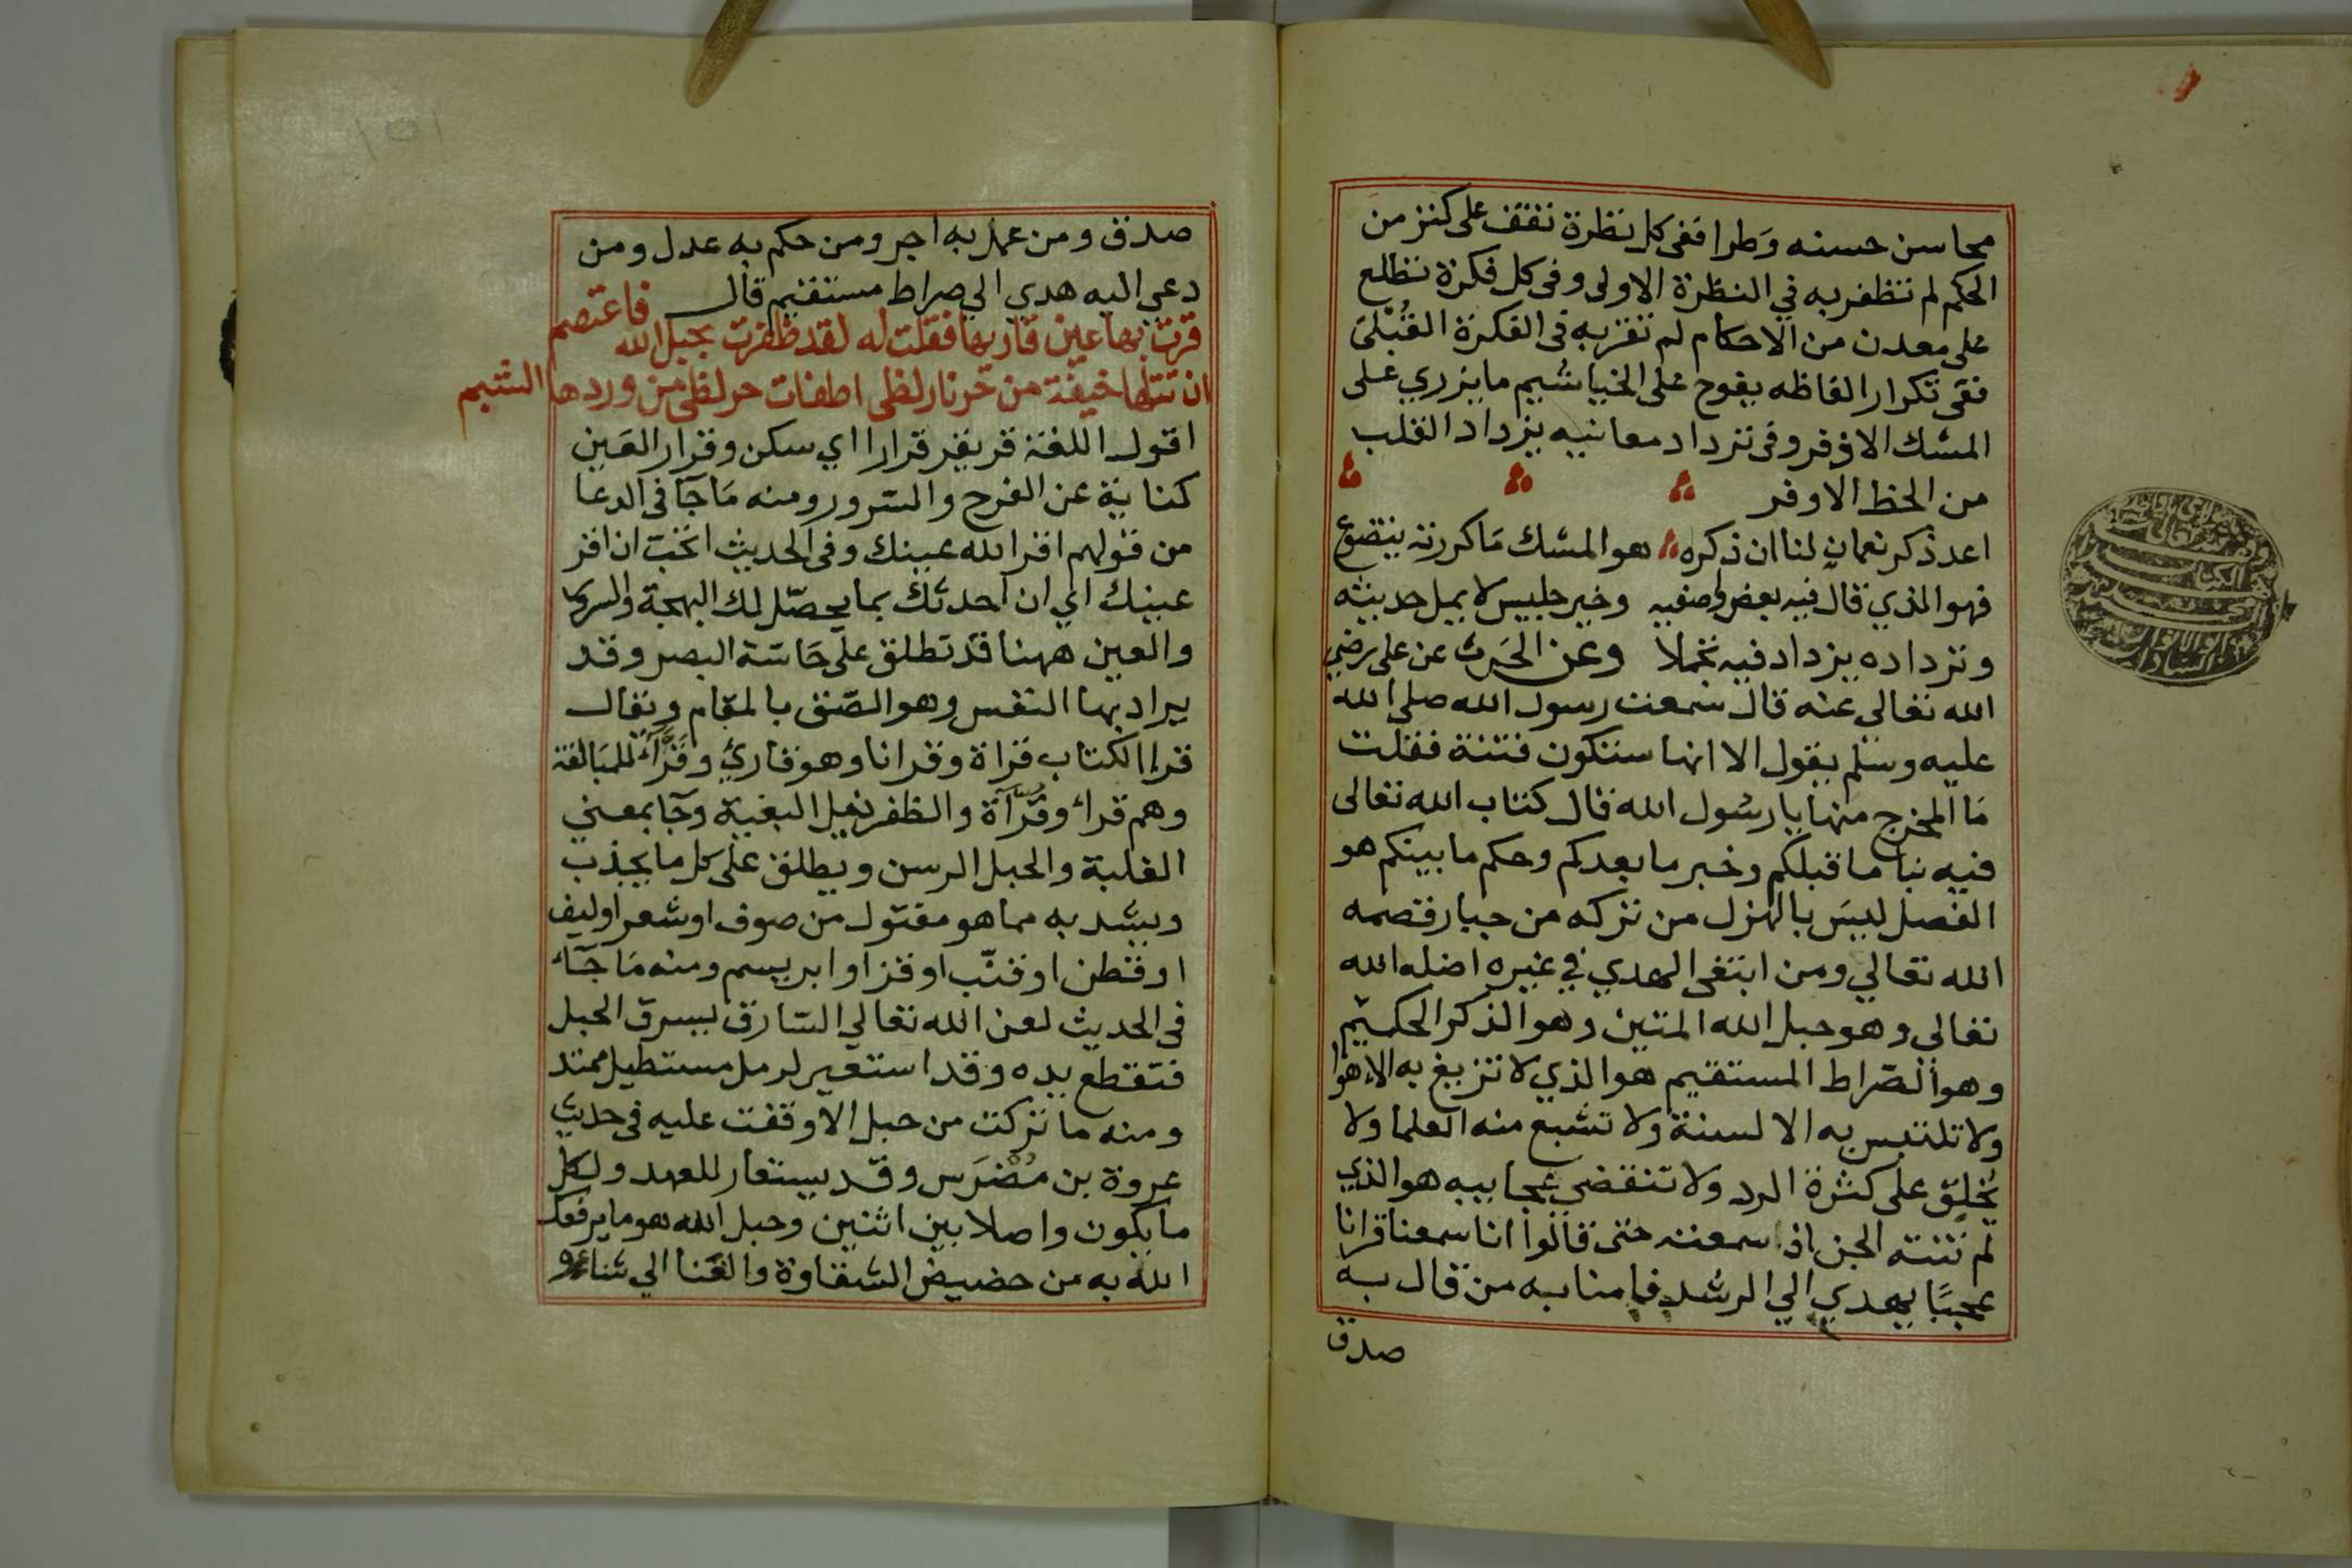 محاسن حسنه وَطرا ففى كل نظرة تقف على كنز من
الحكم لم تظفر به في النظرة الاولى وفى كل فكرة تطلع
على معدن من الاحكام لم تفز به فى الفكرة القُبْلىَ
ففى تكرار الفاظه يفوح على الخياشيم ما يزري على
المسك الاذفر وفى ترداد معانيه يزداد القلب
من الحظ الاوفر
اعد ذكر نعمان لنا ان ذكره هو المسك مَا كررته يتضوع
فهو الذي قال فيه بعض واصفيه وخير جليس لا يمل حديثه
وترداده يزداد فيه تجملا وعن الحَرث عن على رضي
الله تعالي عنه قال سَمعت رسول الله صلى الله
عليه وسَلم يقول الا انها ستكون فتنة فقلت
مَا المخرج منها يا رسُول الله قال كتاب الله تعالى
فيه نبا ما قبلكم وخبر ما بعدكم وحكم ما بينكم هو
الفصل ليسَ بالهزل من تركه من جبار قصمه
الله تعالي ومن ابتغى الهدي في غيره اضله الله
تعالي وهو حبل الله المتين وهو الذكر الحكيم
وهو الصّراط المستقيم هو الذي لا تزيغ به الاهوا
ولا تلتبس به الالسنة ولا تشبع منه العلما ولا
تخلق على كثرة الرد ولا تنقضي عجايبه هو الذي
لم تنته الجن اذ سمعته حتى قالوا انا سمعنا قرانا
عجبًا يهدي الي الرشد فامنا به من قال به
صدق
صدق ومن عمل به اجر ومن حكم به عدل ومن
دعي اليه هدي الي صراط مستقيم قال
قرت بها عين قاريها فقلت له لقد ظفرت بحبل الله فاعتصم
ان تتلها خيفة من حر نار لظى اطفات حر لظى من وردها الشبم
اقول اللغة قر يقر قرارا اي سكن وقرار العَين
كناية عن الفرح والسّرور ومنه مَا جَآ فى الدعا
من قولهم اقر الله عينك وفى الحديث اتحبّ ان اقر
عينك اي ان احدثك بما يحصّل لك البهجة والسرور
والعين ههنا قد تطلق على حَاسّة البصر وقد
يراد بها النفس وهو الصّق بالمقام ويقال
قرا الكتاب قراة وقرانا وهو قاريٌ وقَرَّآءٌ للمبَالغة
وهم قراء وقُرّآة والظفر نيل البغية وجَا بمعني
الغلبة والحبل الرسن ويطلق على كل ما يجذب
ويشد به مما هو مفتول من صوف او شعر او ليف
او قطن او قنّب او قز او ابريسم ومنه مَا جَآء
فى الحديث لعن الله تعالي السّارق يسرق الحبل
فتقطع يده وقد استعير لرمل مستطيل ممتد
ومنه ما تركت من حبل الا وقفت عليه فى حديث
عروة بن مُضَرّس وقد يستعار للعهد ولكل
ما يكون واصلا بين اثنين وحبل الله هو ما يرفعك
الله به من حضيض الشقاوة والعَنا الي